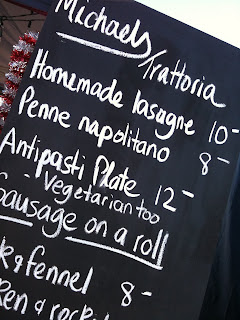 Michaels Trattoria
Homemade lasagne 10-
Penne napolitano 8-
Antipasti Plate 12-
Vegetarian too
Sausage on a roll
& fennel 8-